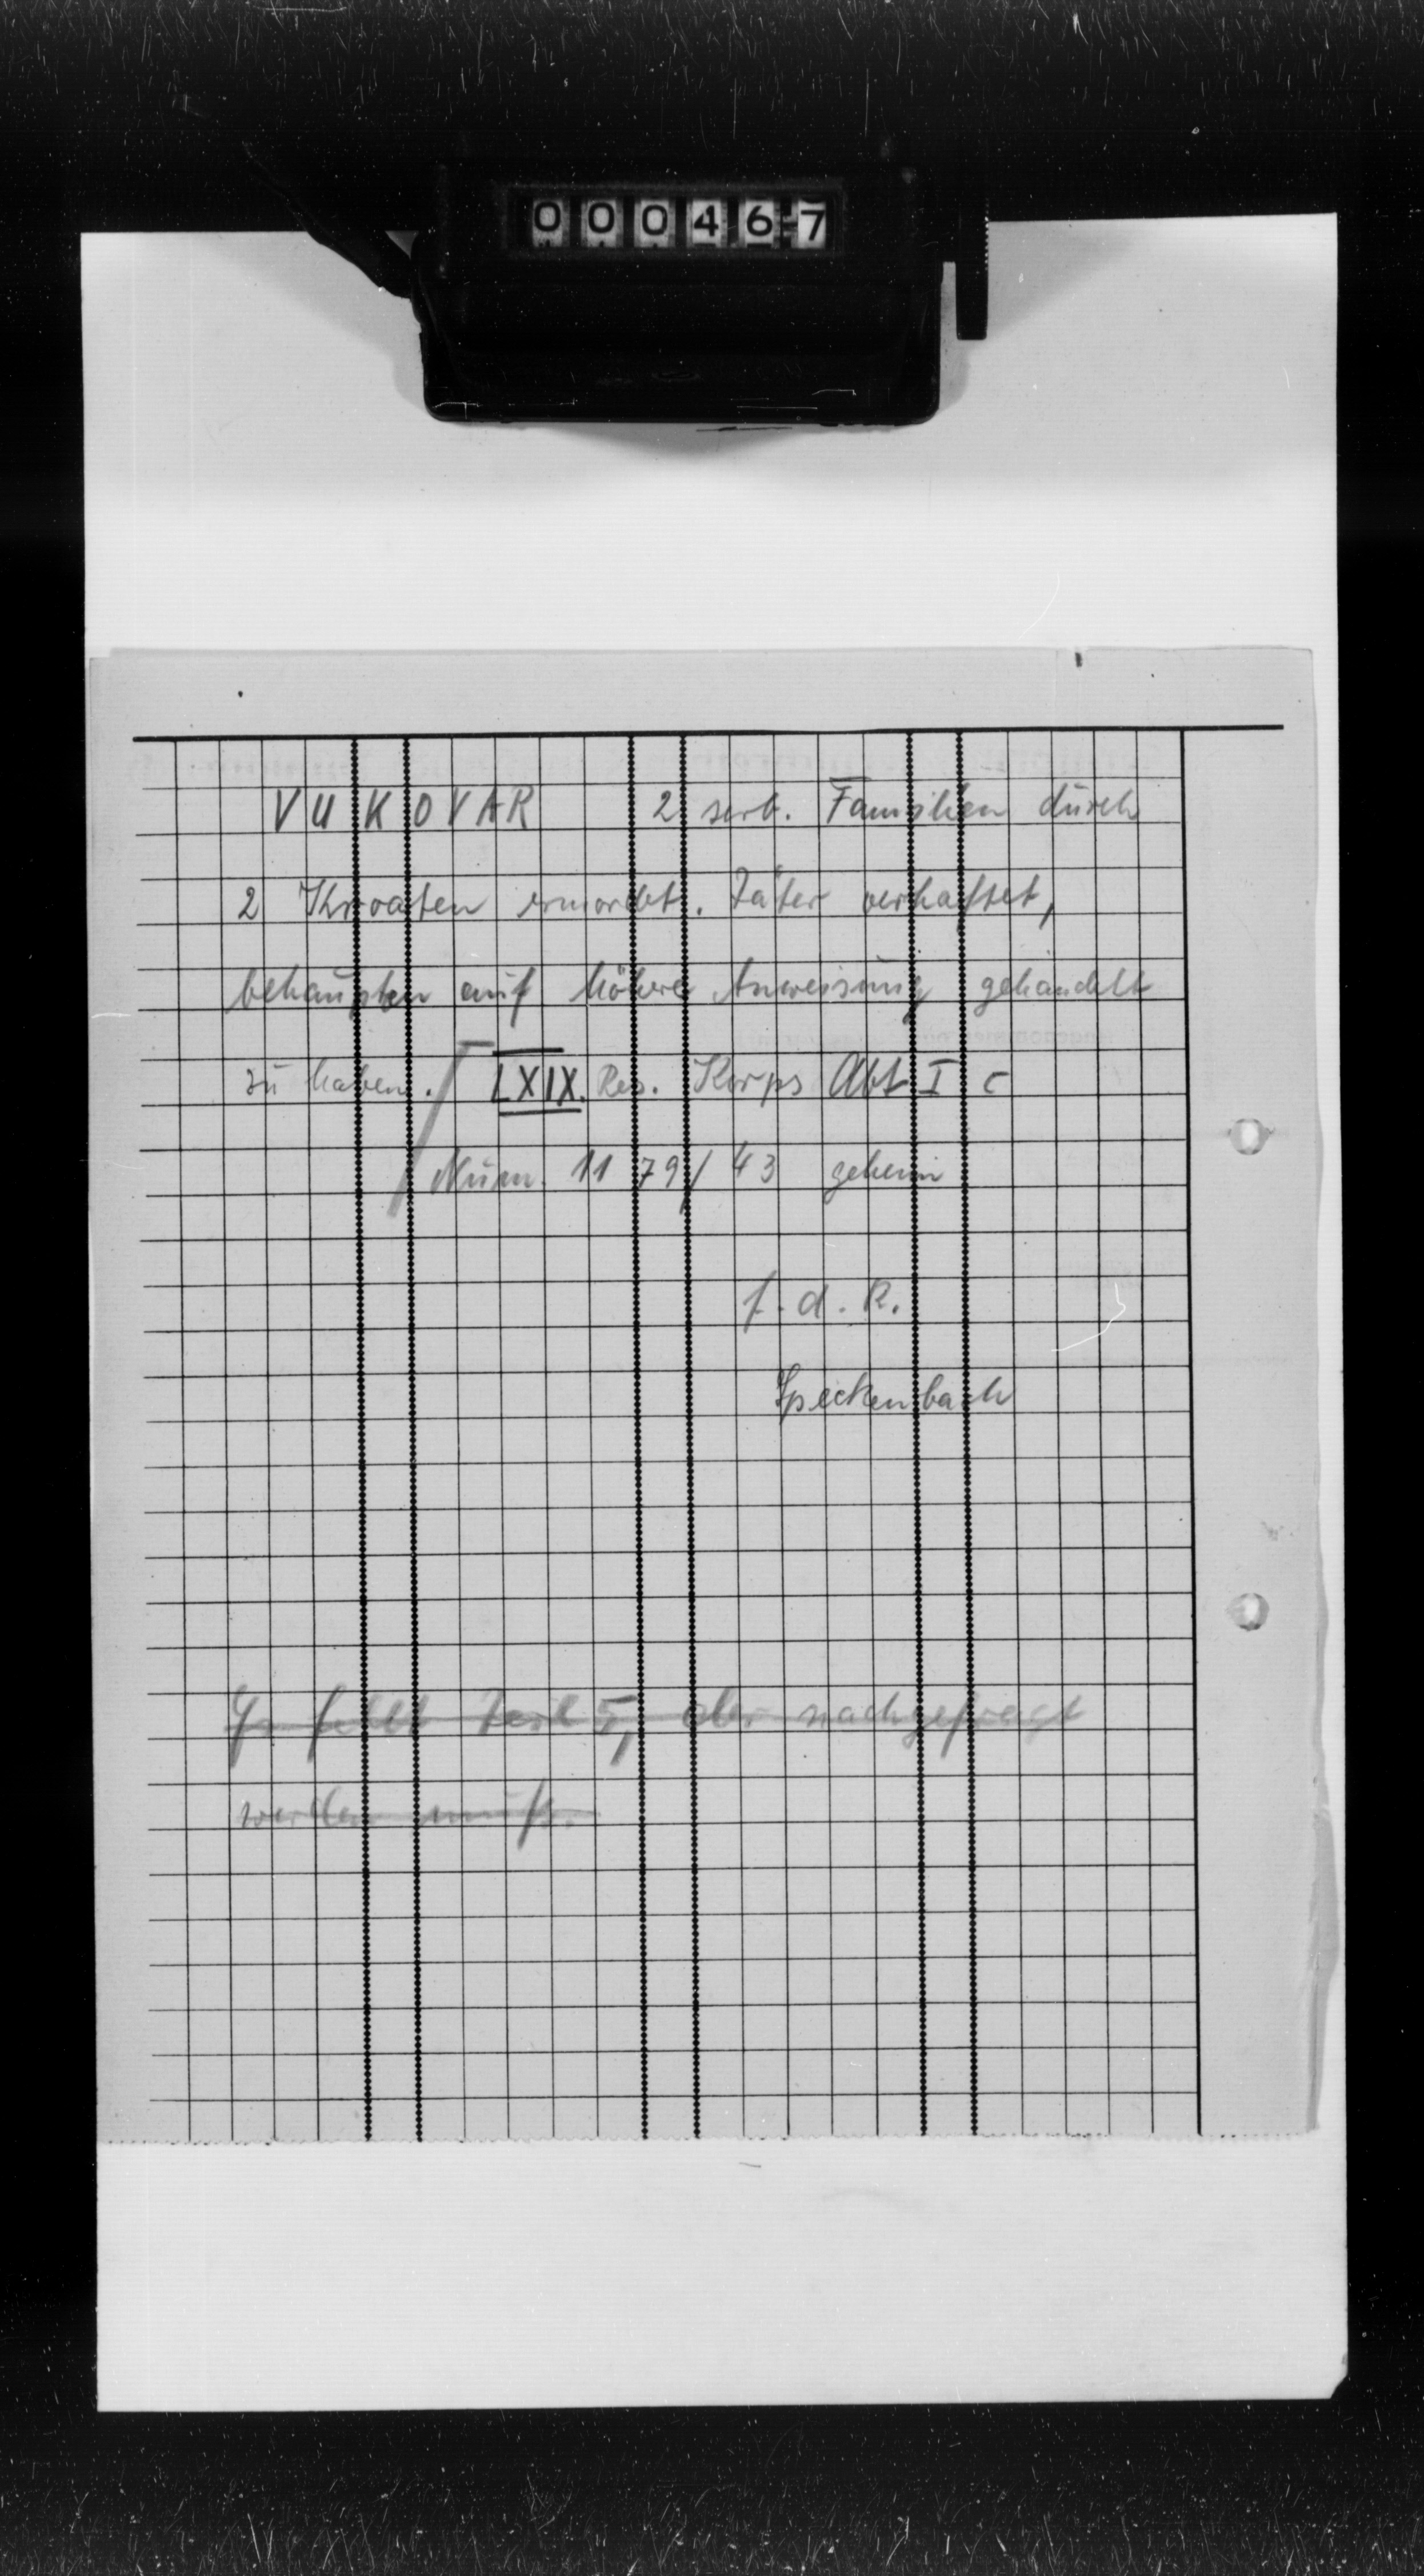 000467
VUKOVAR 2 serb. Familien durch
2 Kroaten ermordet. Täter verhaftet,
behaupten auf höhere Anweisung gehandelt
zu haben. LXIX. Res. Korps Abt I c
Num. 1179/43 geheim
f. d. R.
Speckenbach
Es fehlt Teil 5, der nachgefragt
werden muß.